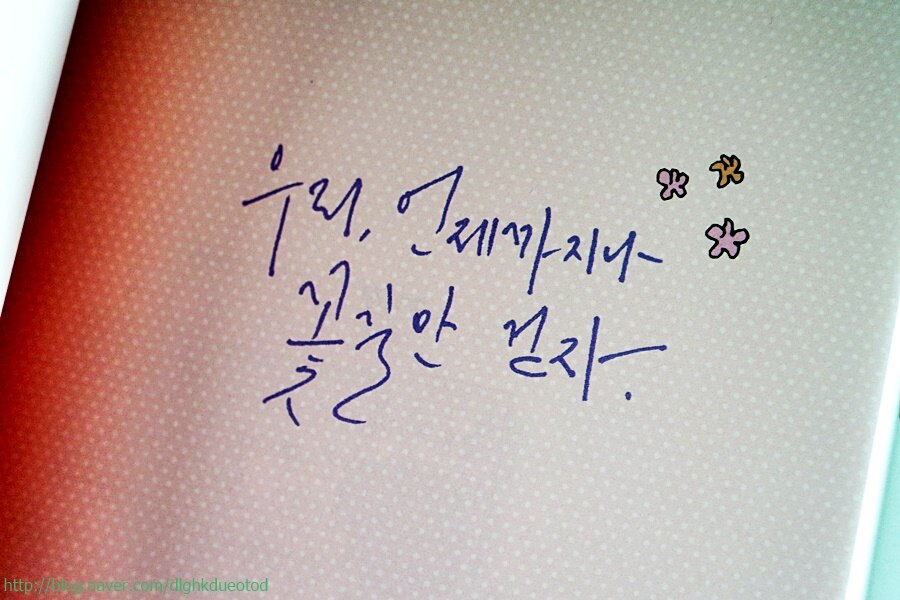 우리, 언제까지나
꽃길만 걷자.
http://blog.naver.com/dlghkdueotod